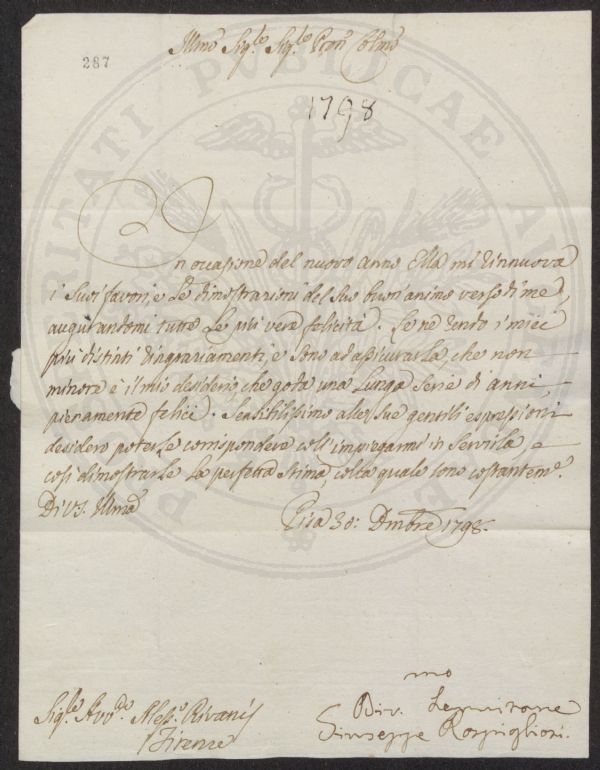 287
Illmo Sig.re Sig.re Pron Colmo
1798
In occasione del nuovo anno Ella mi rinnuova
i Suoi favori, e Le dimostrazioni del Suo buon animo verso di me,
augurandomi tutte Le più vere felicità. Le ne rendo i miei
più distinti ringraziamenti, e Sono ad assicurarla, che non
minore è il mio desiderio, che goda una Lunga Serie di anni
pienamente felici. Sensibilissimo alle Sue gentili espressioni
desidero poterle corrispondere coll'impiegarmi in Servirla e
così dimostrarle La perfetta Stima, colla quale Sono costantem.e
Di VS. Illma
Pisa 30: Dmbre 1798.
mo
Div. Servitore
Giuseppe Rospigliosi.
Sig.re Avv.to Aless.o Rivani
Firenze